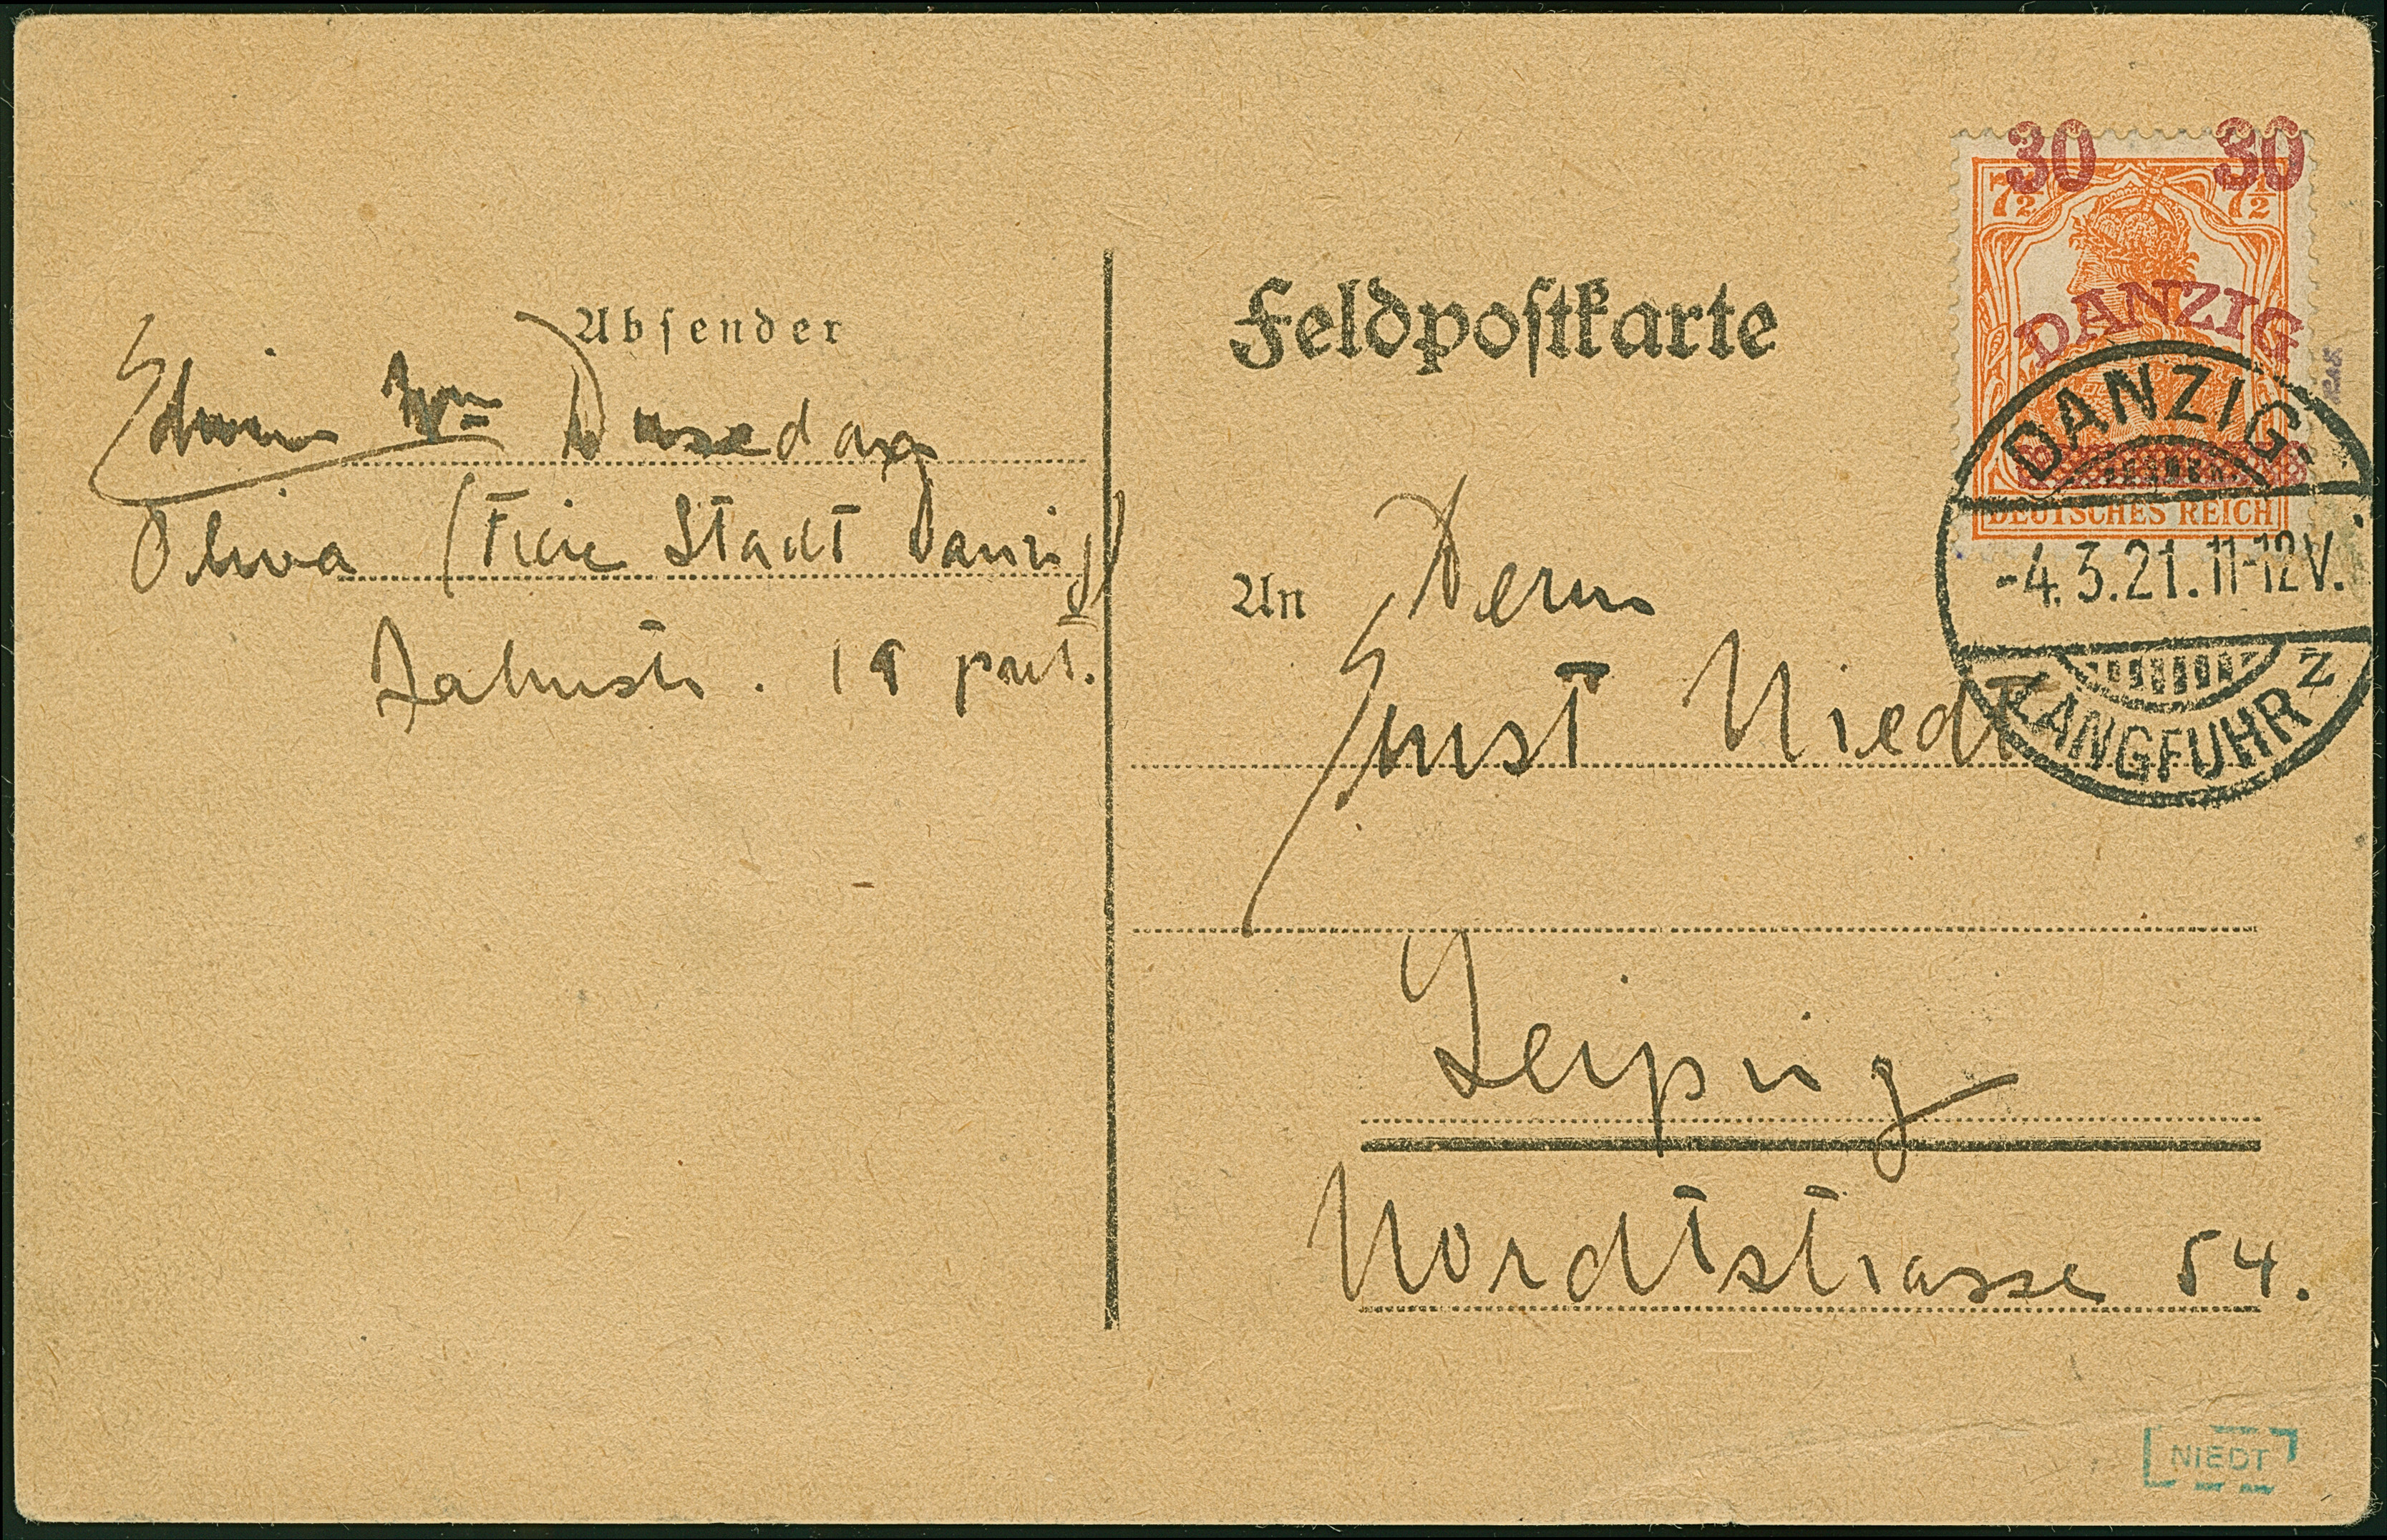 Absender
Edwin Wm Dusedax
Oliva (Freie Stadt Danzig)
Jahnstr. 19 part.
Feldpostkarte
30 30
7½ 7½
DANZIG
DEUTSCHES REICH
DANZIG.
-4.3.21.11-12V.
LANGFUHR z
An Herrn
Ernst Niedt
Leipzig
Nordtstrasse 54.
NIEDT